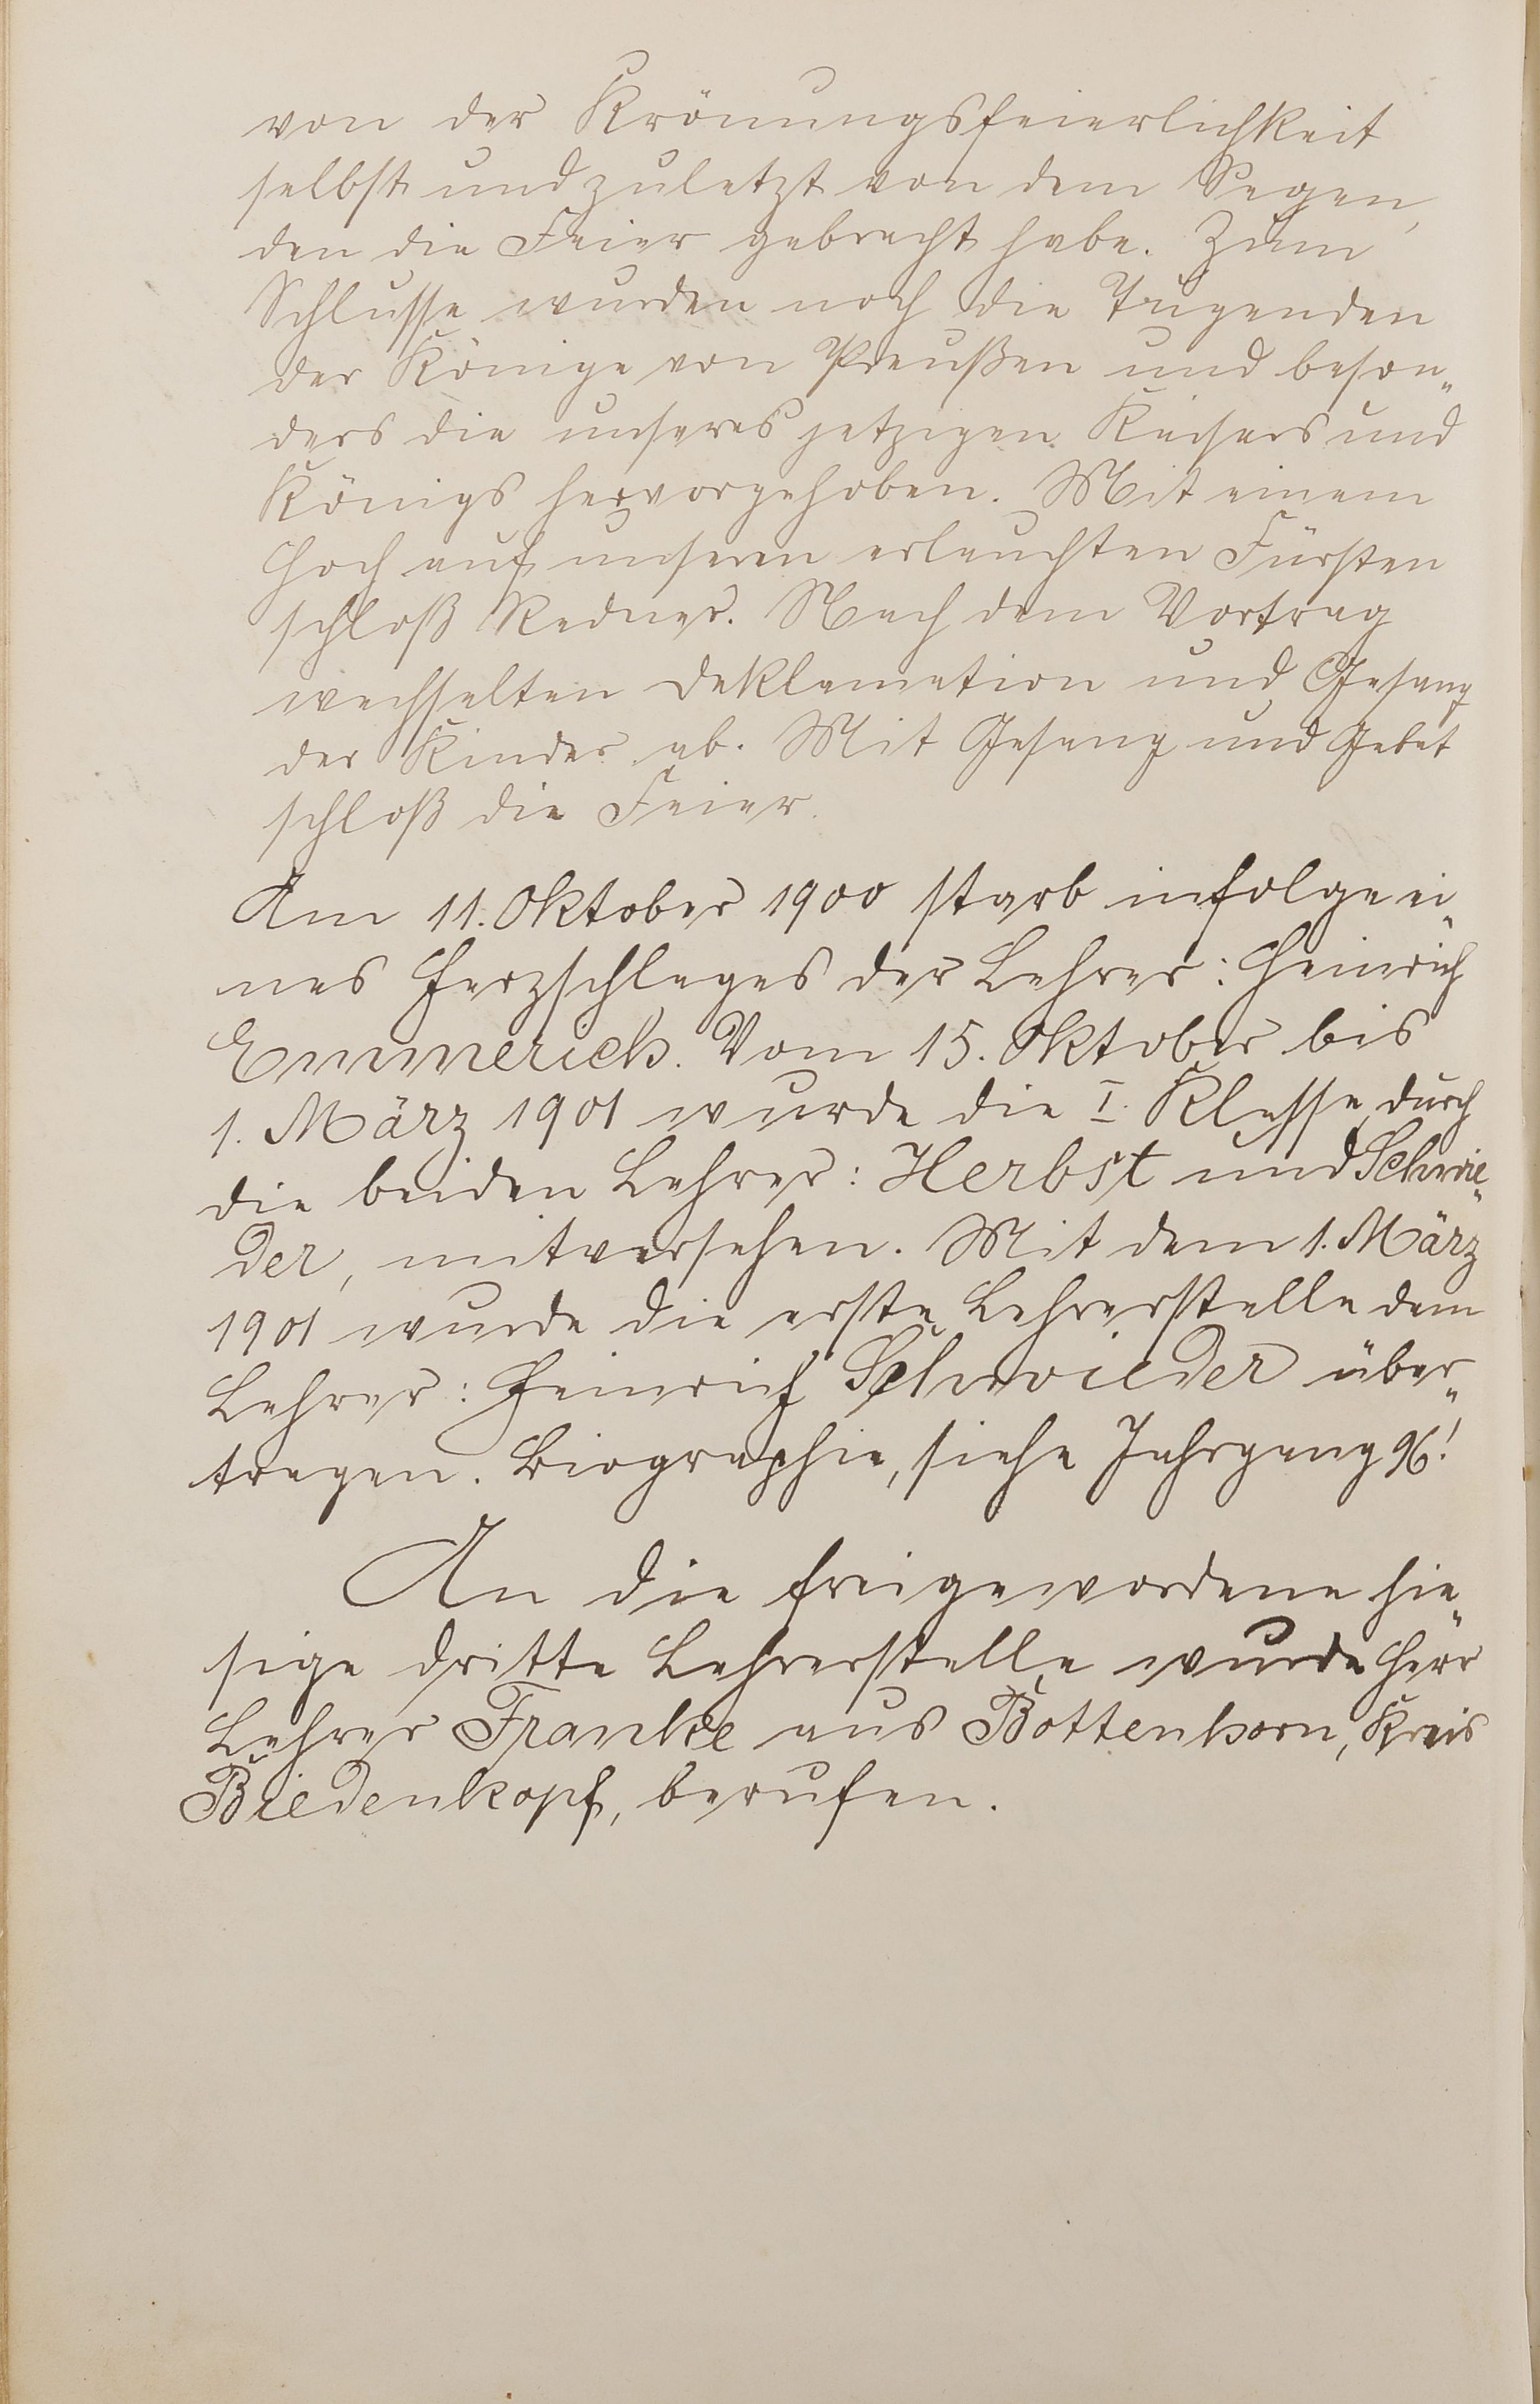 von der Krönungsfeierlichkeit
selbst und zuletzt von dem Segen,
den die Feier gebracht habe. Zum
Schlusse wurden noch die Tugenden
der Könige von Preußen und beson„
ders die unseres jetzigen Kaisers und
Königs hervorgehoben. Mit einem
Hoch auf unseren erlauchten Fürsten
schloß Redner. Nach dem Vortrag
wechselten Deklamation und Gesang
der Kinder ab. Mit Gesang und Gebet
schloß die Feier.
Am 11. Oktober 1900 starb infolge ei„
nes Herzschlages der Lehrer: Heinrich
Emmerich. Vom 15. Oktober bis
1. März 1901 wurde die I. Klasse durch
die beiden Lehrer: Herbst und Schwie„
der, mitversehen. Mit dem 1. März
1901 wurde die erste Lehrerstelle dem
Lehrer: Heinrich Schwieder über„
tragen. Biographie, siehe Jahrgang 96!
An die freigewordene hie„
sige dritte Lehrerstelle wurde Herr
Lehrer Franke aus Bottenhorn, Kreis
Biedenkopf, berufen.